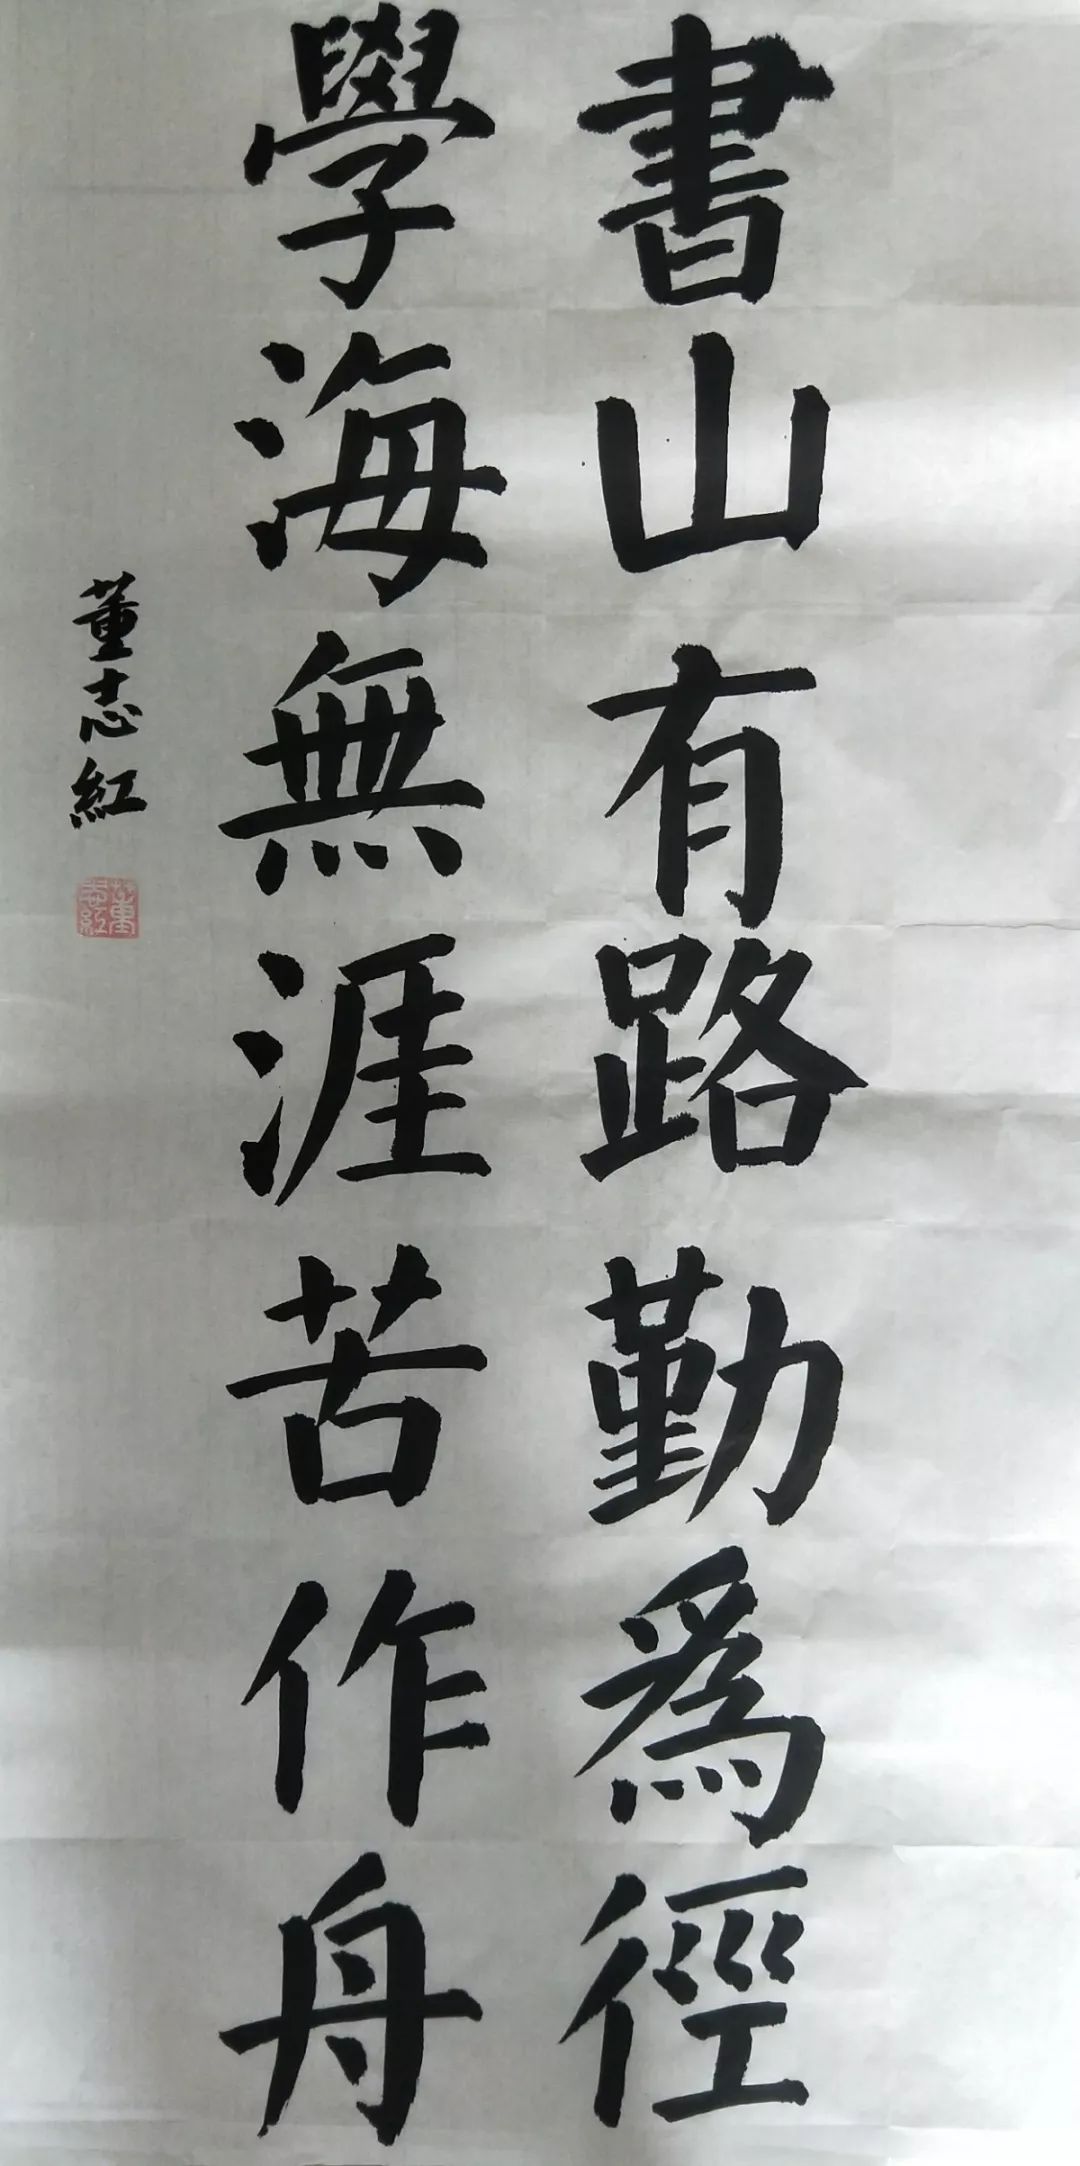 書山有路勤為徑
學海無涯苦作舟
董志紅
董志紅